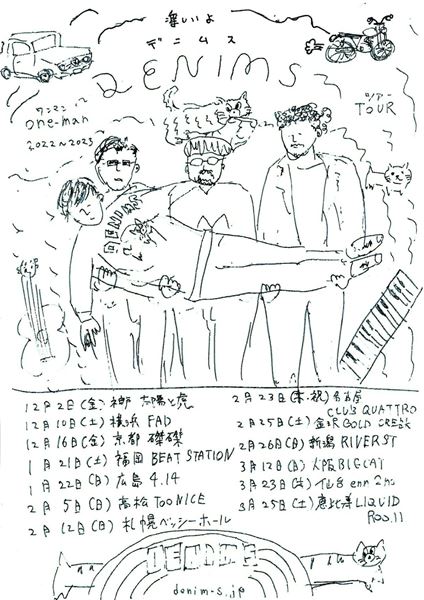 凄いよ
デニムス
DENIMS
ワンマン
one-man
2022~2023
ツアー
TOUR
12月2日(金)神戸 太陽と虎
12月10日(土)横浜 FAD
12月16日(金)京都 磔磔
1月21日(土)福岡 BEAT STATION
1月22日(日)広島 4.14
2月5日(日)高松 TOO NICE
2月12日(日)札幌 ベッシーホール
2月23日(木・祝)名古屋
CLUB QUATTRO
2月25日(土)金沢 GOLD CREEK
2月26日(日)新潟 RIVERST
3月12日(日)大阪 BIGCAT
仙台 enn 2nd
3月25日(土)恵比寿 LIQUID
ROOM
DENIMS
denim-s.jp